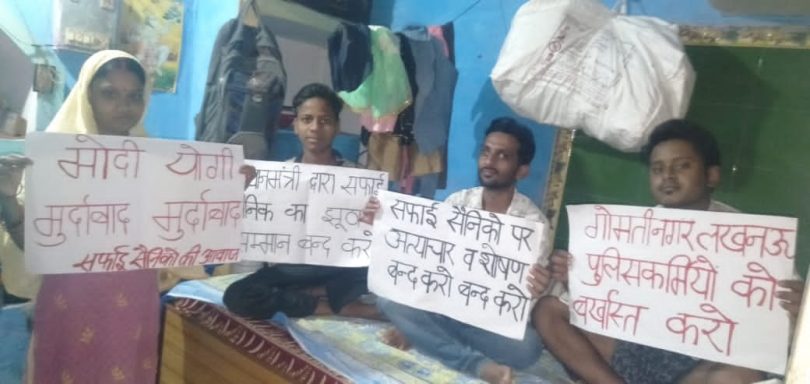 मोदी योगी
मुर्दाबाद मुर्दाबाद
सफाई सैनिकों की आवाज
द्वारा सफाई
का झूठा
बन्द करो
सफाई सैनिको पर
अत्याचार व शोषण
बन्द करो बन्द करो
गोमतीनगर लखनऊ
पुलिसकर्मियों को
बर्खास्त करो